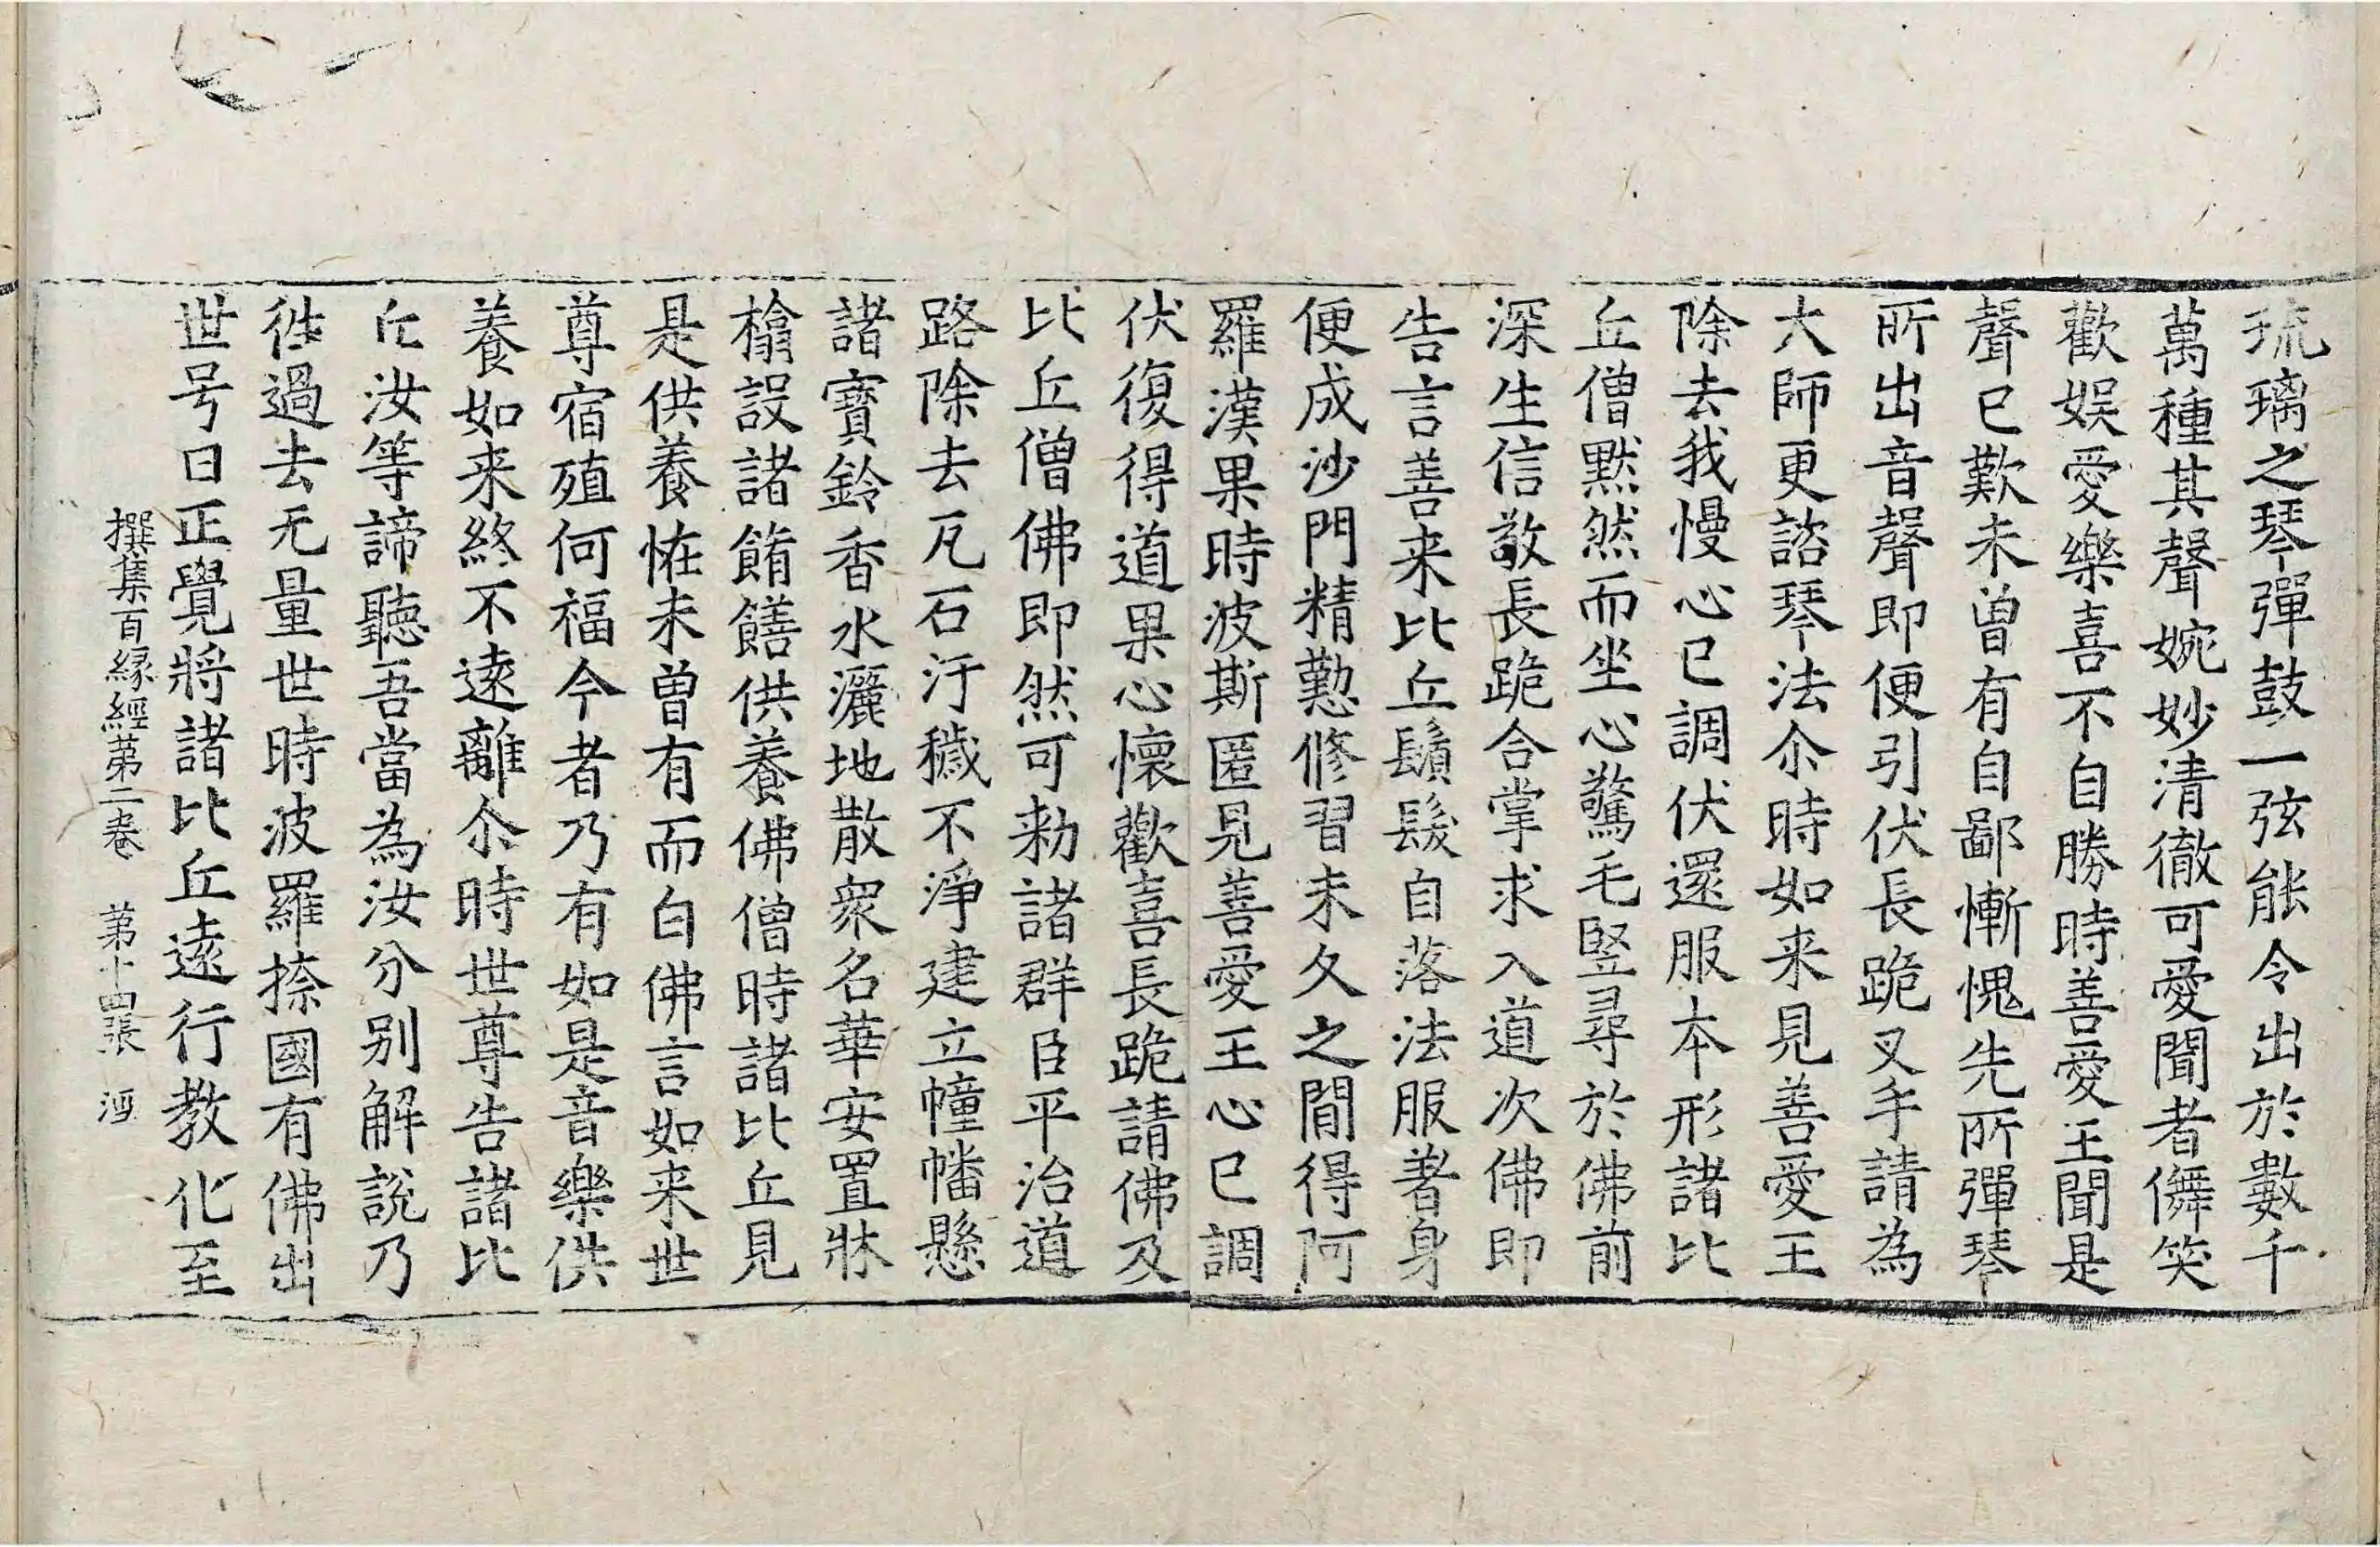 琉璃之琴彈鼓一弦能令出於數千
萬種其聲婉妙清徹可愛聞者儛笑
歡娛愛樂喜不自勝時善愛王聞是
聲已歎未曾有自鄙慚愧先所彈琴
所出音聲即便引伏長跪叉手請為
大師更諮琴法尒時如来見善愛王
除去我慢心已調伏還服本形諸比
丘僧黙然而坐心驚毛竪尋於佛前
深生信敬長跪合掌求入道次佛即
告言善来比丘鬚髮自落法服著身
便成沙門精懃修習未久之間得阿
羅漢果時波斯匿見善愛王心已調
伏復得道果心懷歡喜長跪請佛及
比丘僧佛即然可勑諸群臣平治道
路除去瓦石汙穢不淨建立幢幡懸
諸寶鈴香水灑地散衆名華安置牀
榻設諸餚饍供養佛僧時諸比丘見
是供養恠未曾有而白佛言如来世
尊宿殖何福今者乃有如是音樂供
養如来終不遠離尒時世尊告諸比
丘汝等諦聽吾當為汝分别解說乃
徃過去无量世時波羅捺國有佛出
世号曰正覺將諸比丘遠行教化至
撰集百緣經第二卷 第十四張